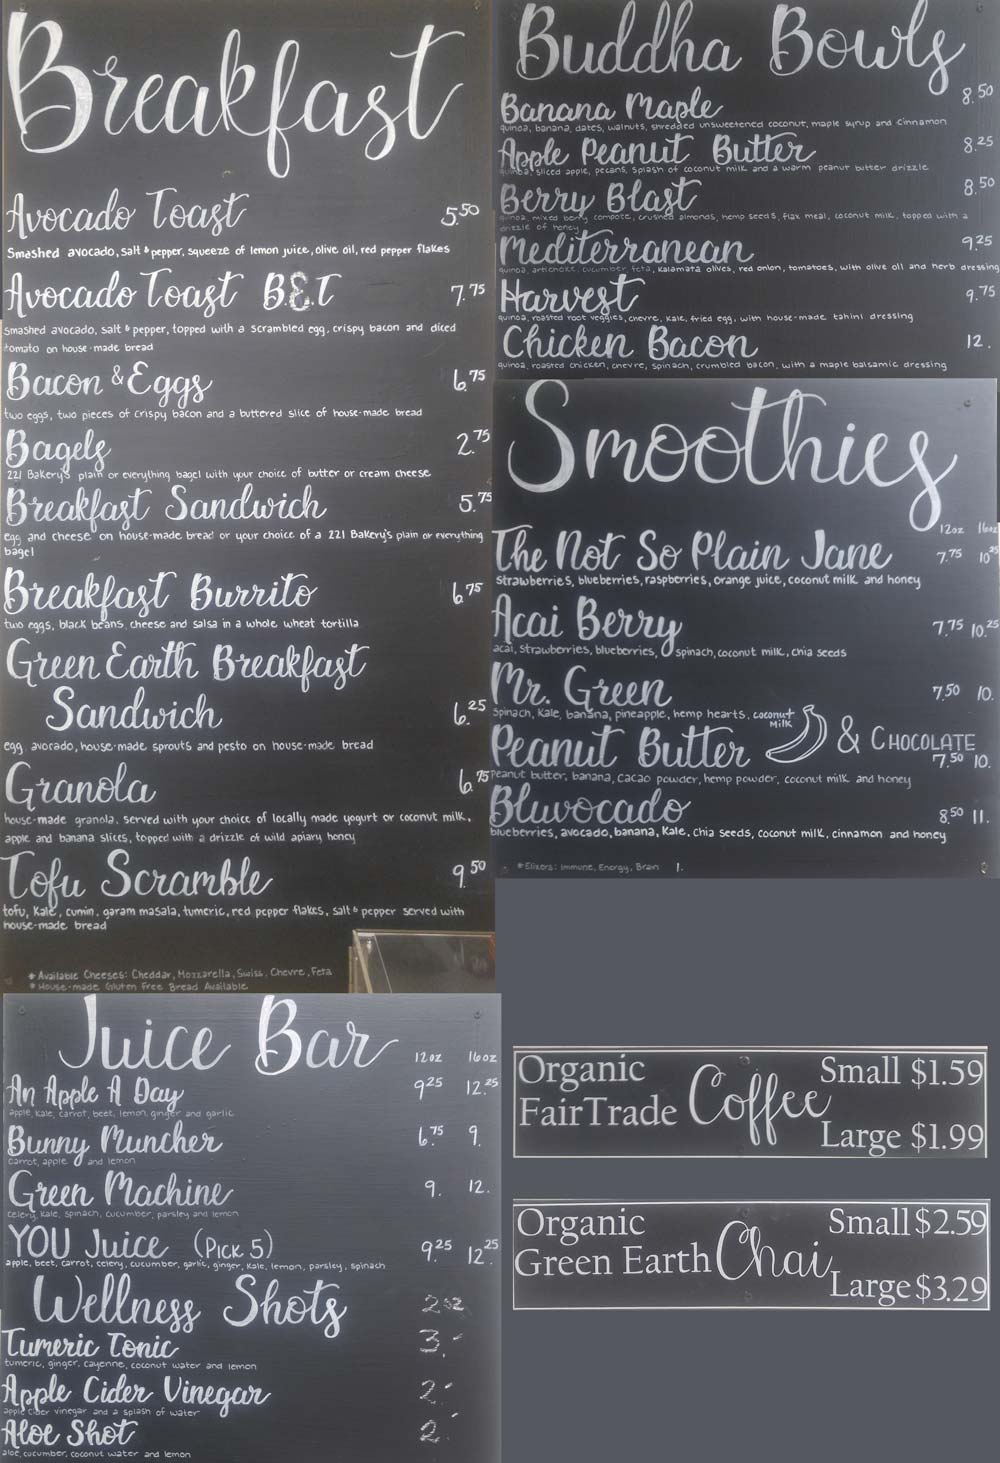 Breakfast
Avocado Toast 5.50
Smashed avocado, salt & pepper, squeeze of lemon juice, olive oil, red pepper flakes
Avocado Toast BET 7.75
smashed avocado, salt & pepper, topped with a scrambled egg, crispy bacon and diced
tomato on house-made bread
Bacon & Eggs 6.75
two eggs, two pieces of crispy bacon and a buttered slice of house-made bread
Bagels 2.75
221 Bakery's plain or everything bagel with your choice of butter or cream cheese
Breakfast Sandwich 5.75
egg and cheese on house-made bread or your choice of a 221 Bakery's plain or everything
bagel
Breakfast Burrito 6.75
two eggs, black beans, cheese and salsa in a whole wheat tortilla
Green Earth Breakfast
Sandwich 6.25
egg, avocado, house-made sprouts and pesto on house-made bread
Granola 6.75
house-made granola, served with your choice of locally made yogurt or coconut milk,
apple and banana slices, topped with a drizzle of wild apiary honey
Tofu Scramble 9.50
tofu, kale, cumin, garam masala, tumeric, red pepper flakes, salt & pepper served with
house-made bread
* Available Cheeses: Cheddar, Mozzarella, Swiss, Chevre, Feta
* House-made Gluten Free Bread Available
Buddha Bowls
Banana Maple 8.50
quinoa, banana, dates, walnuts, shredded unsweetened coconut, maple syrup and cinnamon
Apple Peanut Butter 8.25
quinoa, sliced apple, pecans, splash of coconut milk and a warm peanut butter drizzle
Berry Blast 8.50
quinoa, mixed berry compote, crushed almonds, hemp seeds, flax meal, coconut milk, topped with a
drizzle of honey
Mediterranean 9.25
quinoa, artichoke, cucumber, feta, kalamata olives, red onion, tomatoes, with olive oil and herb dressing
Harvest 9.75
quinoa, roasted root veggies, chevre, kale, fried egg, with house-made tahini dressing
Chicken Bacon 12.
quinoa, roasted chicken, chevre, spinach, crumbled bacon, with a maple balsamic dressing
Smoothies
12oz 16oz
The Not So Plain Jane 7.75 10.25
strawberries, blueberries, raspberries, orange juice, coconut milk and honey
Acai Berry 7.75 10.25
acai, strawberries, blueberries, spinach, coconut milk, chia seeds
Mr. Green 7.50 10.
Spinach, kale, banana, pineapple, hemp hearts, coconut
milk
Peanut Butter & Chocolate
7.50 10.
Peanut butter, banana, cacao powder, hemp powder, coconut milk and honey
Bluvocado 8.50 11.
blueberries, avocado, banana, kale, chia seeds, coconut milk, cinnamon and honey
* Elixers: Immune, Energy, Brain 1.
Juice Bar 12oz 16oz
An Apple A Day 9.25 12.25
apple, kale, carrot, beet, lemon, ginger and garlic
Bunny Muncher 6.75 9.
carrot, apple and lemon
Green Machine 9. 12.
celery, kale, spinach, cucumber, parsley and lemon
YOU Juice (Pick 5) 9.25 12.25
apple, beet, carrot, celery, cucumber, garlic, ginger, kale, lemon, parsley, spinach
Wellness Shots 2oz
Tumeric Tonic 3.-
tumeric, ginger, cayenne, coconut water and lemon
Apple Cider Vinegar 2.-
apple cider vinegar and a splash of water
Aloe Shot 2.-
aloe, cucumber, coconut water and lemon
Organic
FairTrade
Coffee
Small $1.59
Large $1.99
Organic
Green Earth
Chai
Small $2.59
Large $3.29